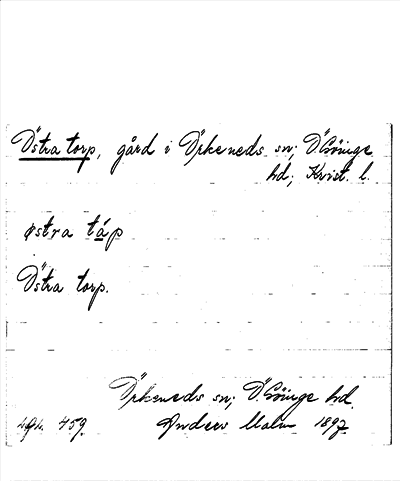 Östra torp, gård i Örkeneds sn; Ö Göinge
hd; Krist. l.
østra tåp
Östra torp.
Örkeneds sn; Ö. Göinge hd.
459. Anders Malm 1897